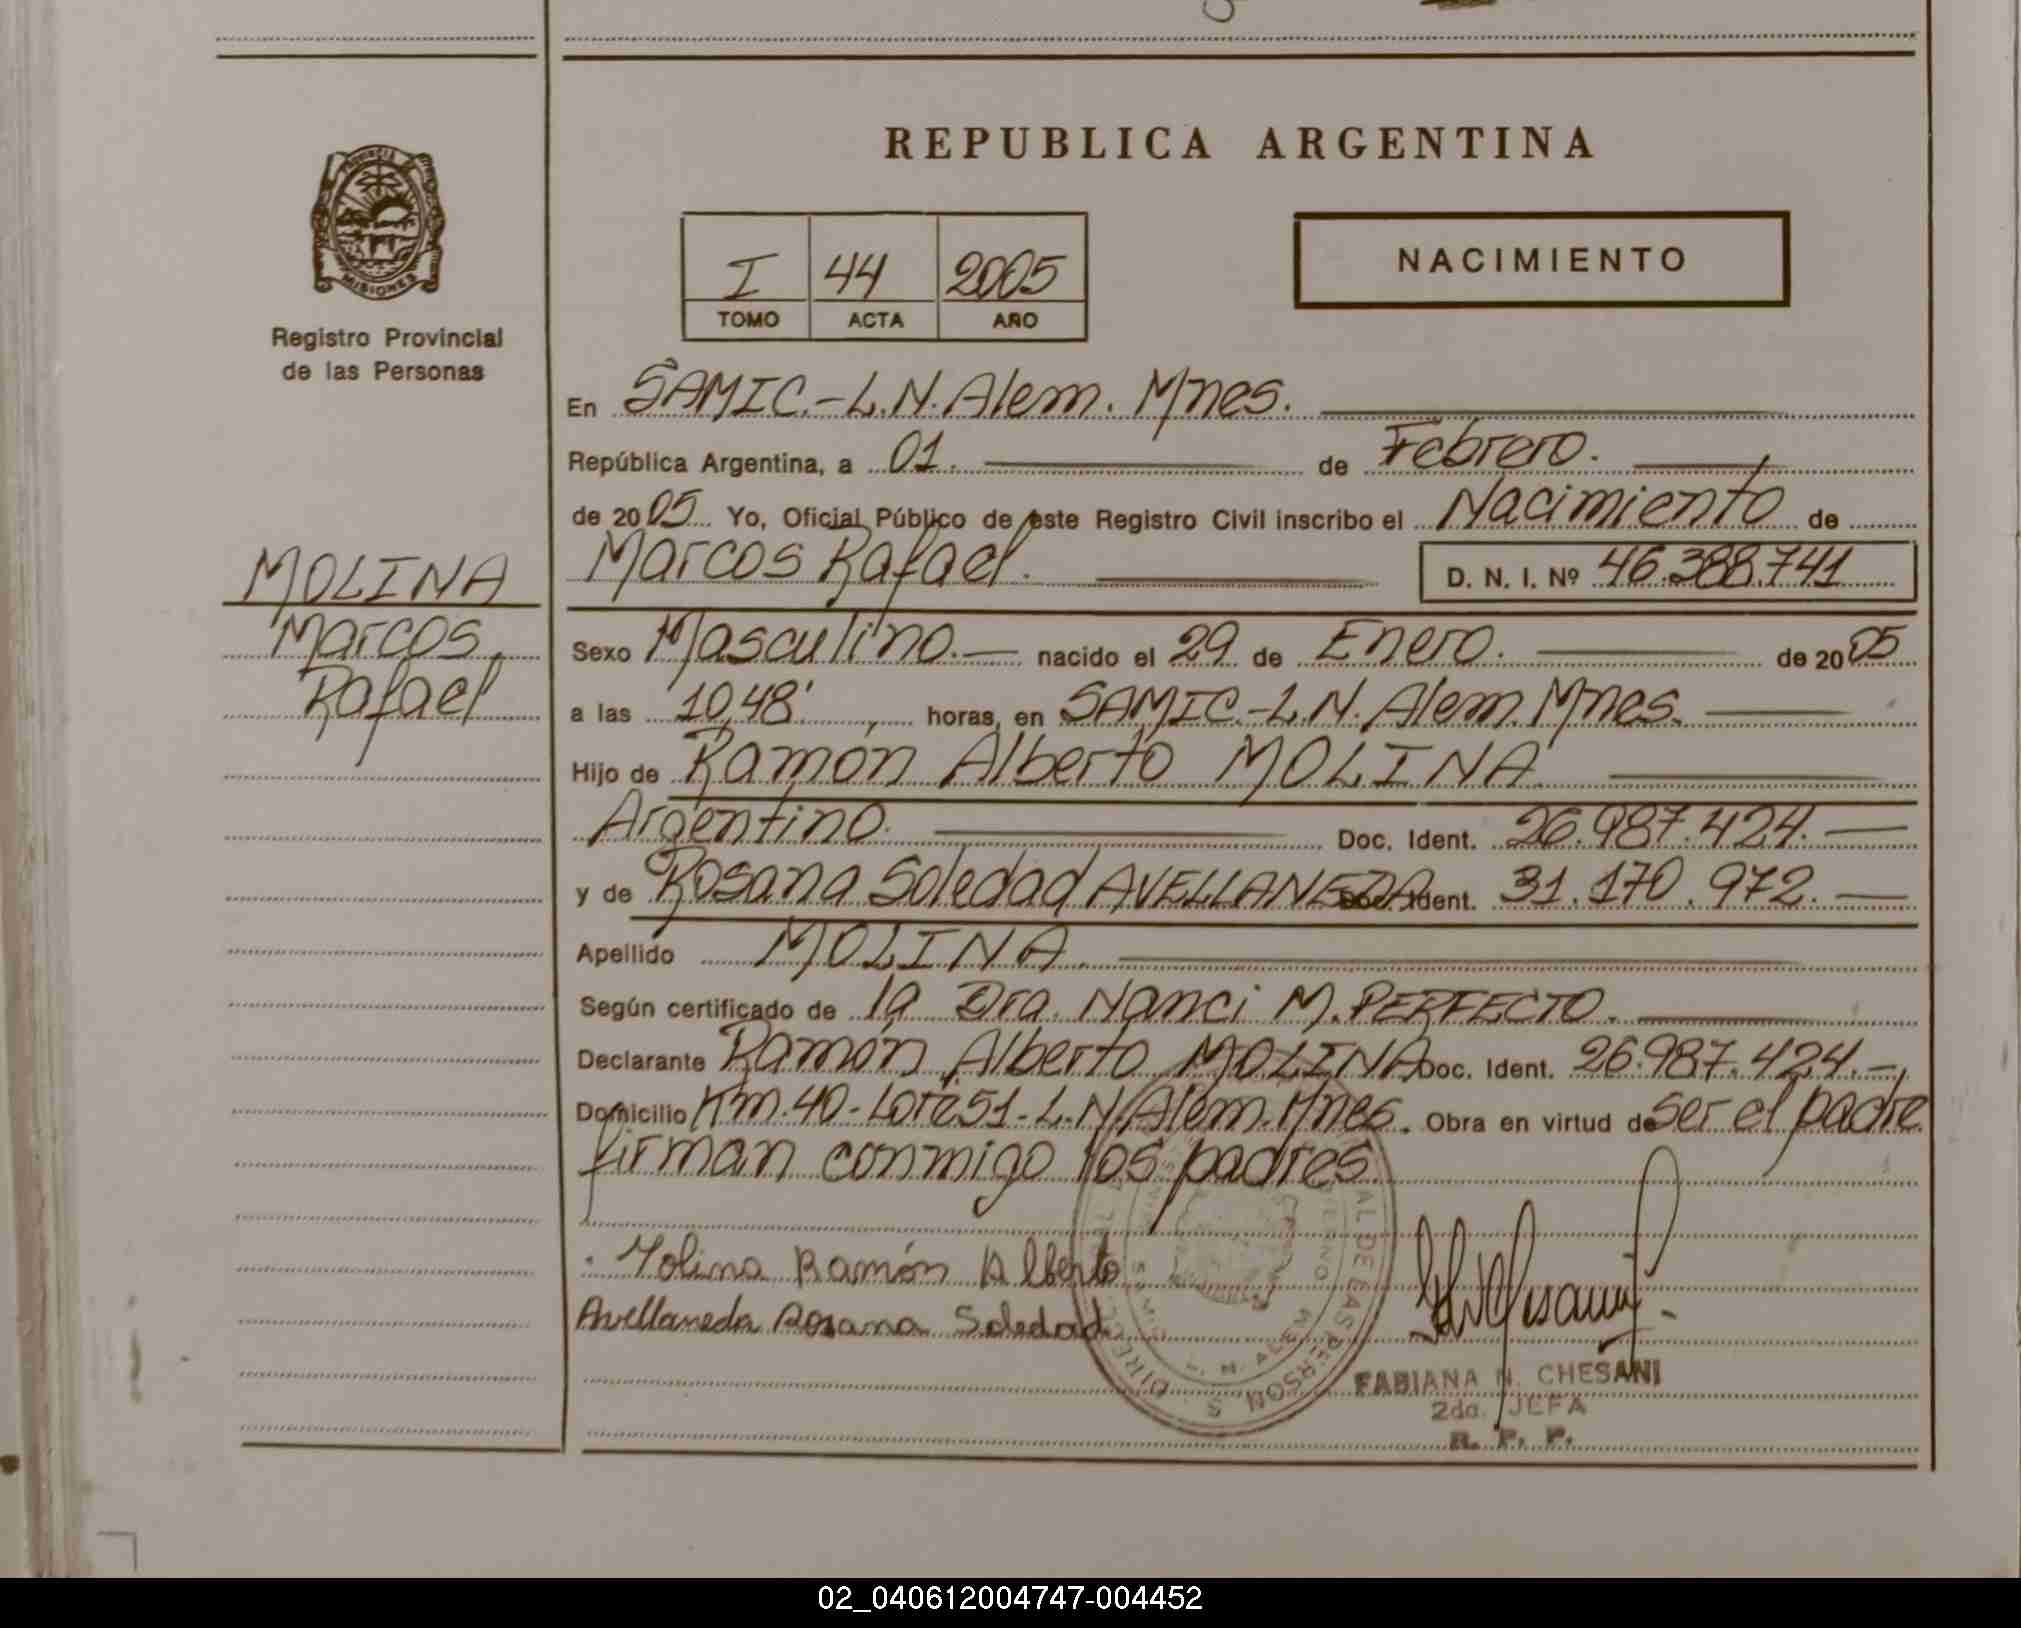 REPUBLICA ARGENTINA
PROVINCIA DE
MISIONES
Registro Provincial
de las Personas
I 44 2005
TOMO ACTA AÑO
NACIMIENTO
En SAMIC.-L.N.Alem. Mnes.
República Argentina, a 01. de Febrero.
de 2005 Yo, Oficial Público de este Registro Civil inscribo el Nacimiento de
Marcos Rafael. D. N. I. Nº 46.388.741
MOLINA
Marcos,
Rafael
Sexo Masculino. nacido el 29 de Enero. de 2005
a las 10,48' horas, en SAMIC.-L.N. Alem. Mnes.
Hijo de Ramón Alberto MOLINA.
Argentino. Doc. Ident. 26.987.424.
y de Rosana Soledad AVELLANEDA Doc. Ident. 31.170.972.
Apellido MOLINA.
Según certificado de la Dra. Nanci M. PERFECTO.
Declarante Ramón Alberto MOLINA Doc. Ident. 26.987.424.-
Domicilio Km.40-Lote51-L.N.Alem.Mnes. Obra en virtud de ser el padre.
firman conmigo los padres.
Molina Ramón Alberto
Avellaneda Rosana Soledad
L. N. ALEM
FABIANA N. CHESANI
2da. JEFA
R. P. P.
02_040612004747-004452